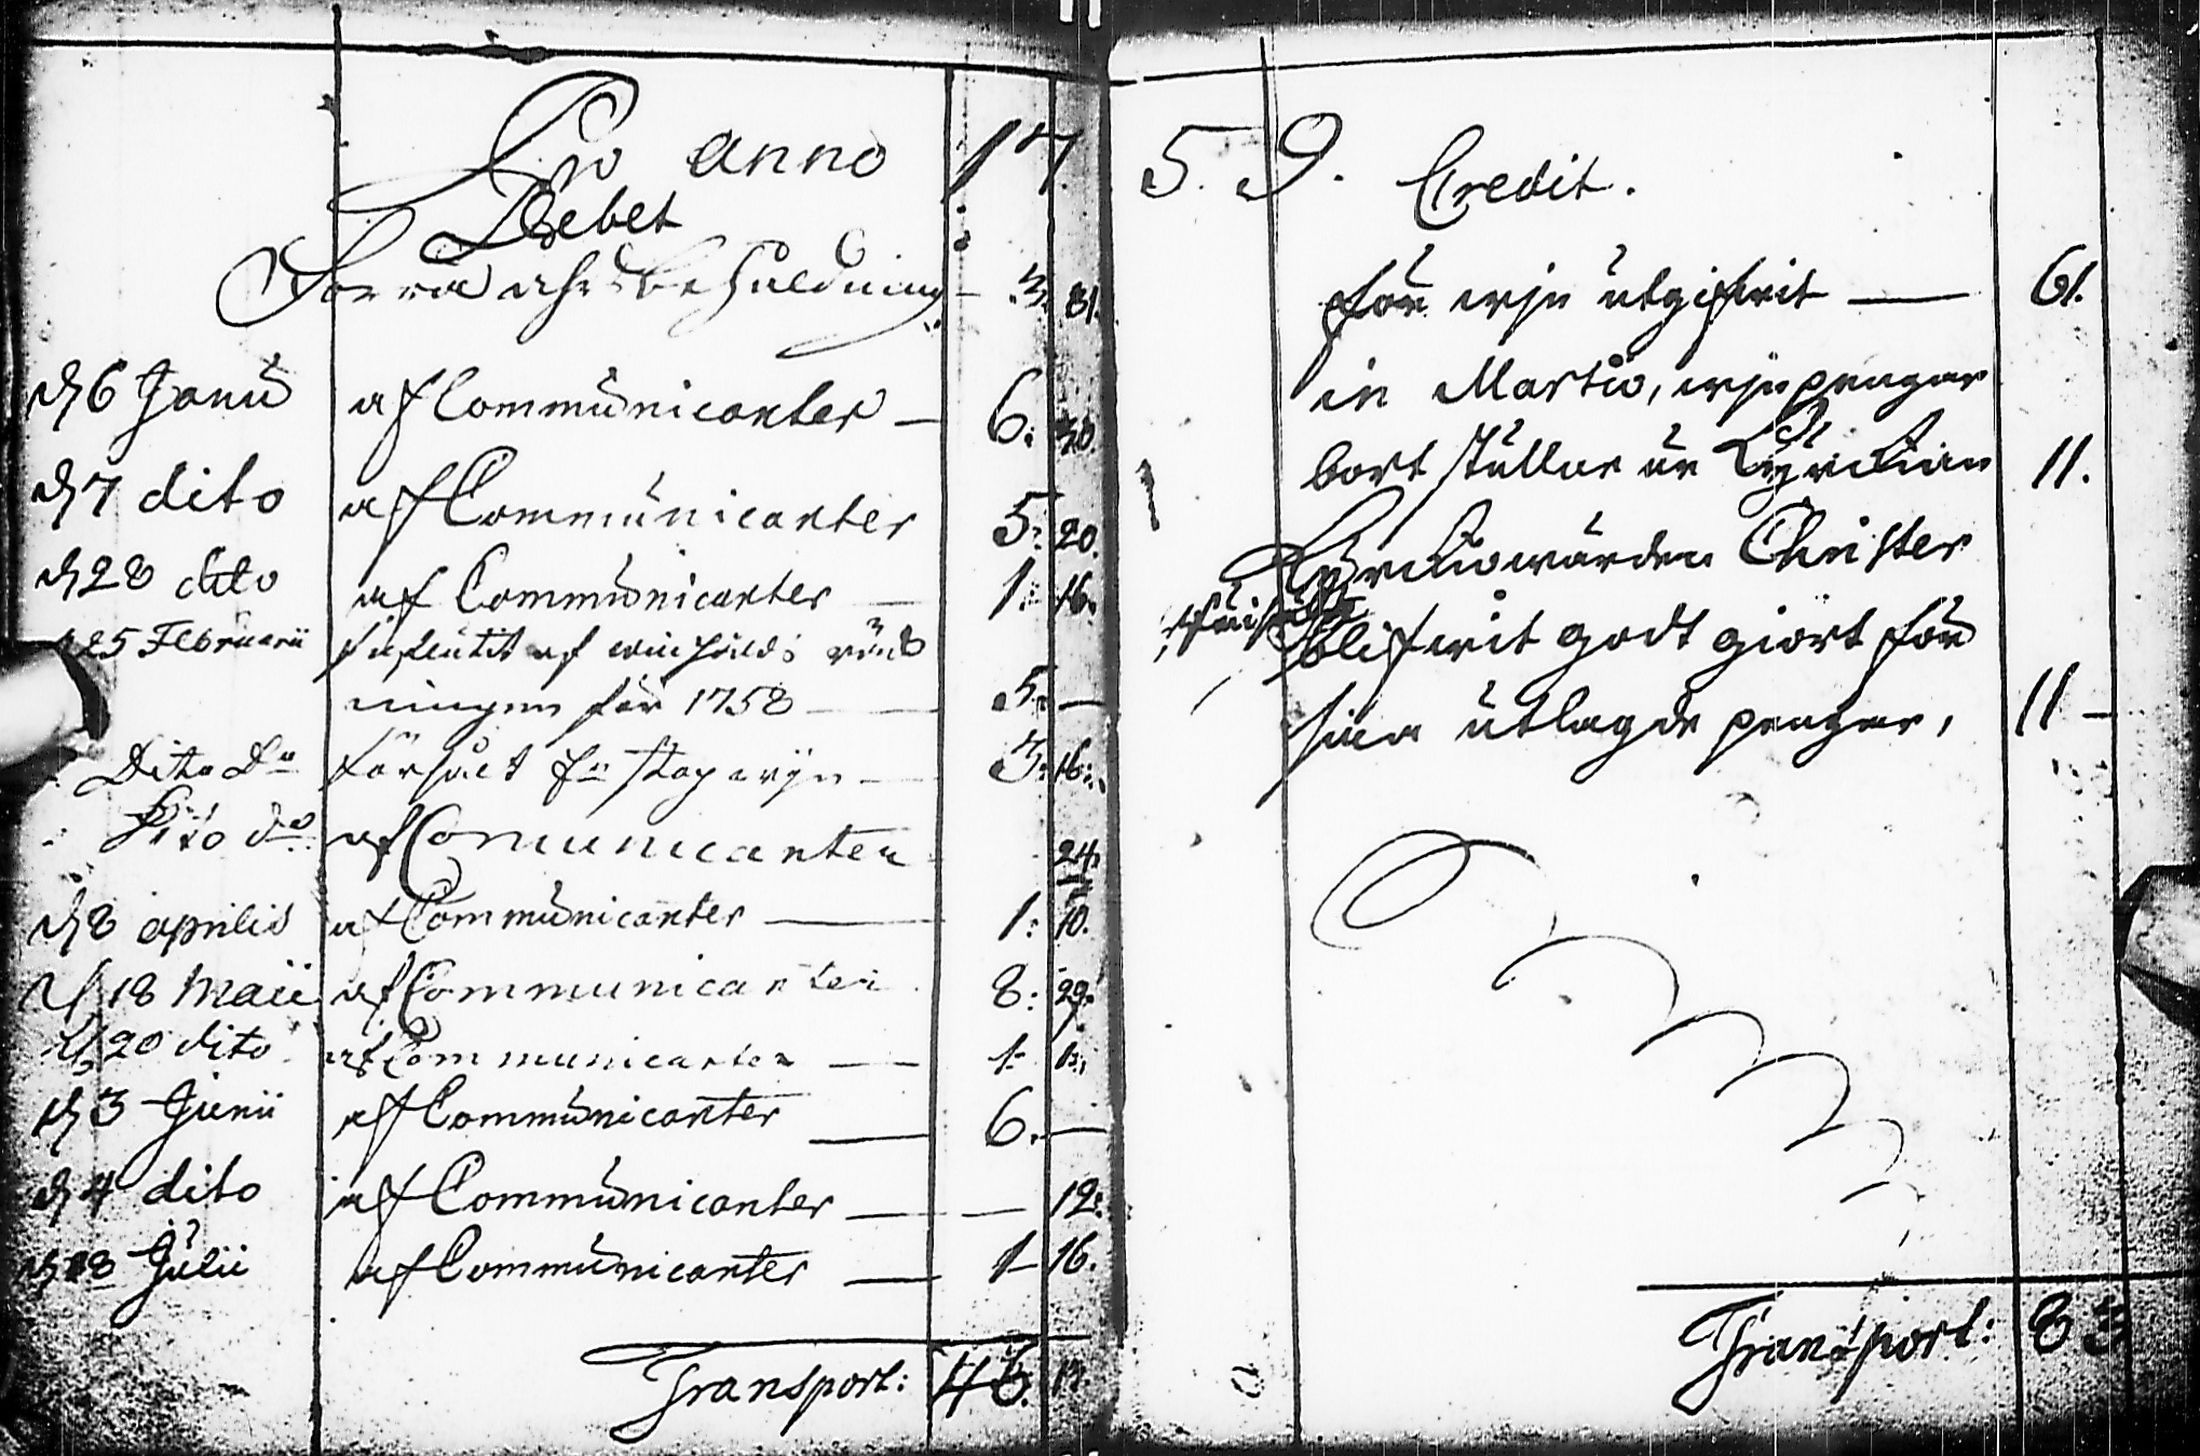 Pro anno 17
Debet
Förra åhrs behåldning - 3. 31.
d 6 Janu af Communicanter - 6: 30.
d 7 dito af Communicanter 5: 20.
d 28 dito af Communicanter - 1: 16.
d 25 Februarii af
ningen för 1758 - 5: -
Dito do - 3: 16:
Dito do af Communicanter 24:
d 8 aprilis af Communicanter - 1: 10.
d 18 Maii af Communicanter 8: 29.
d 20 dito af Communicanter - 1: 1:
d 3 Junii af Communicanter - 6. -
d 4 dito af Communicanter - - 12:
d 18 Julii af Communicanter - 1 - 16.
Transport: 46. 14.
5.9. Credit.
för wjn utgifwit - 61.
in Martio, wjn pengar
bort stulne ur Kyrckian 11.
Kyrckiowärden Christer
blifwit godt giört för
sina utlagde pengar, 11 -
Transport: 83